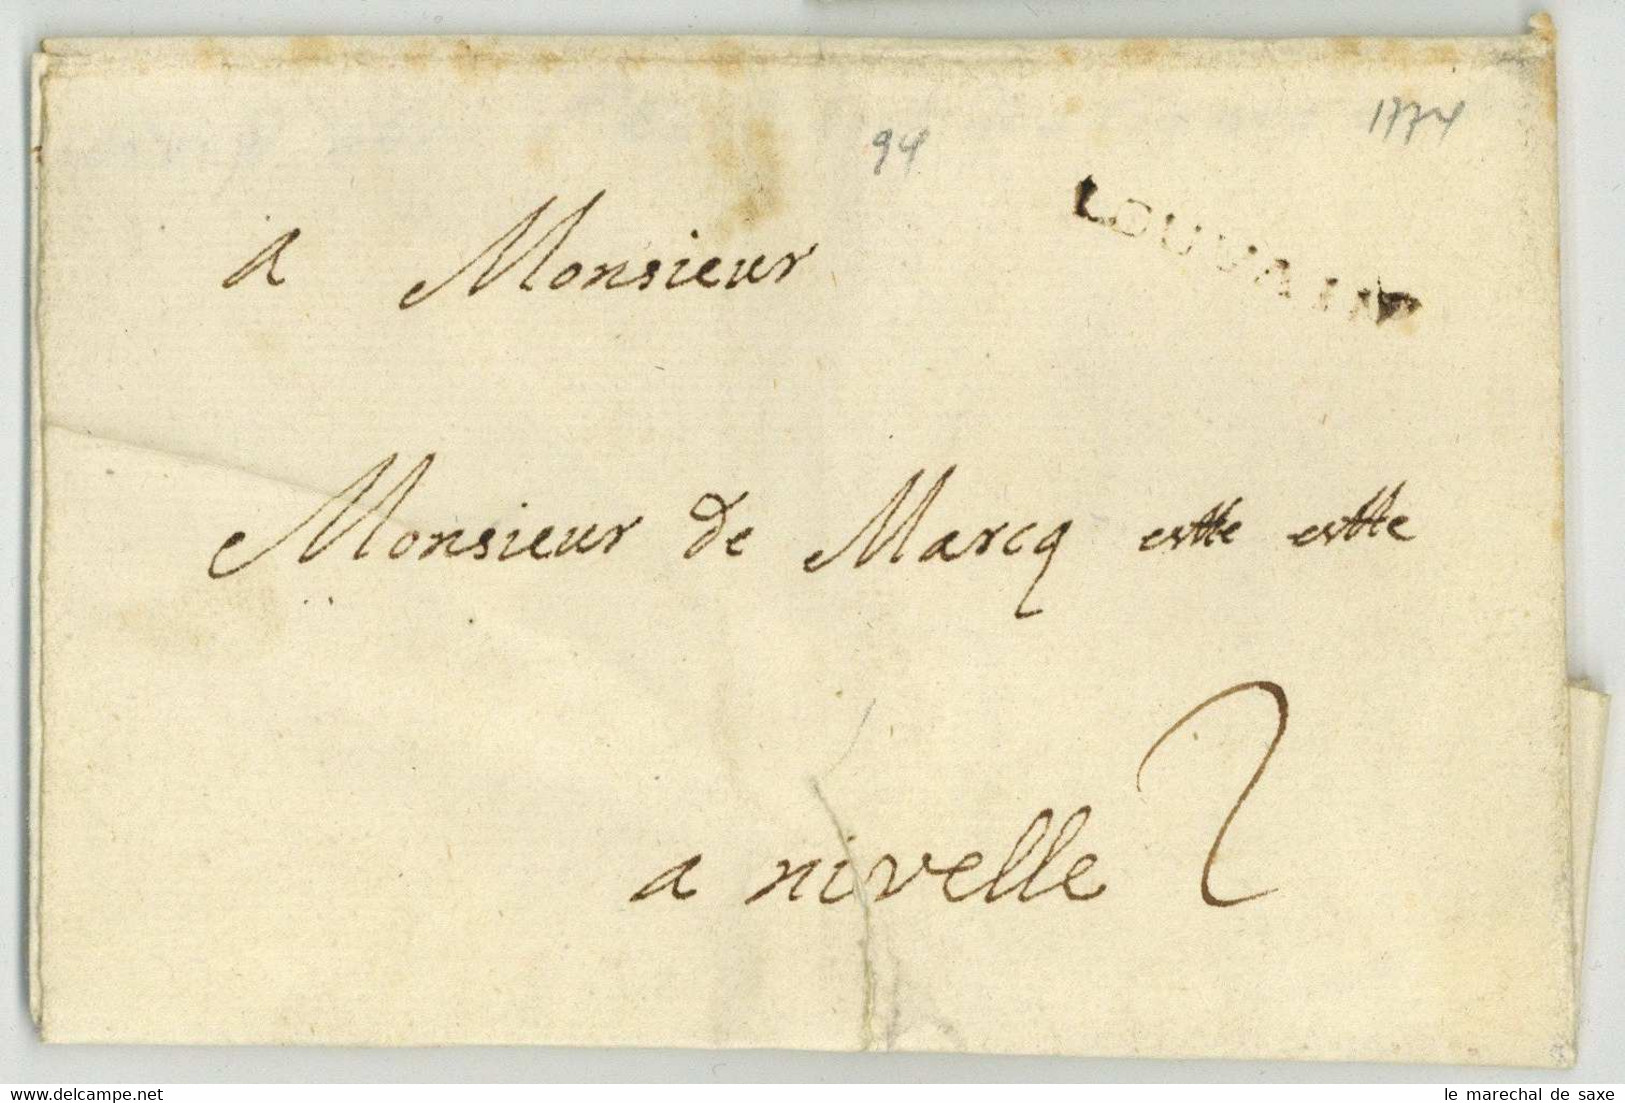 1774
94
LOUVAIN
a Monsieur
Monsieur de Marcq ettc ettc
a nivelle 2
www.delcampe.net
le marechal de saxe